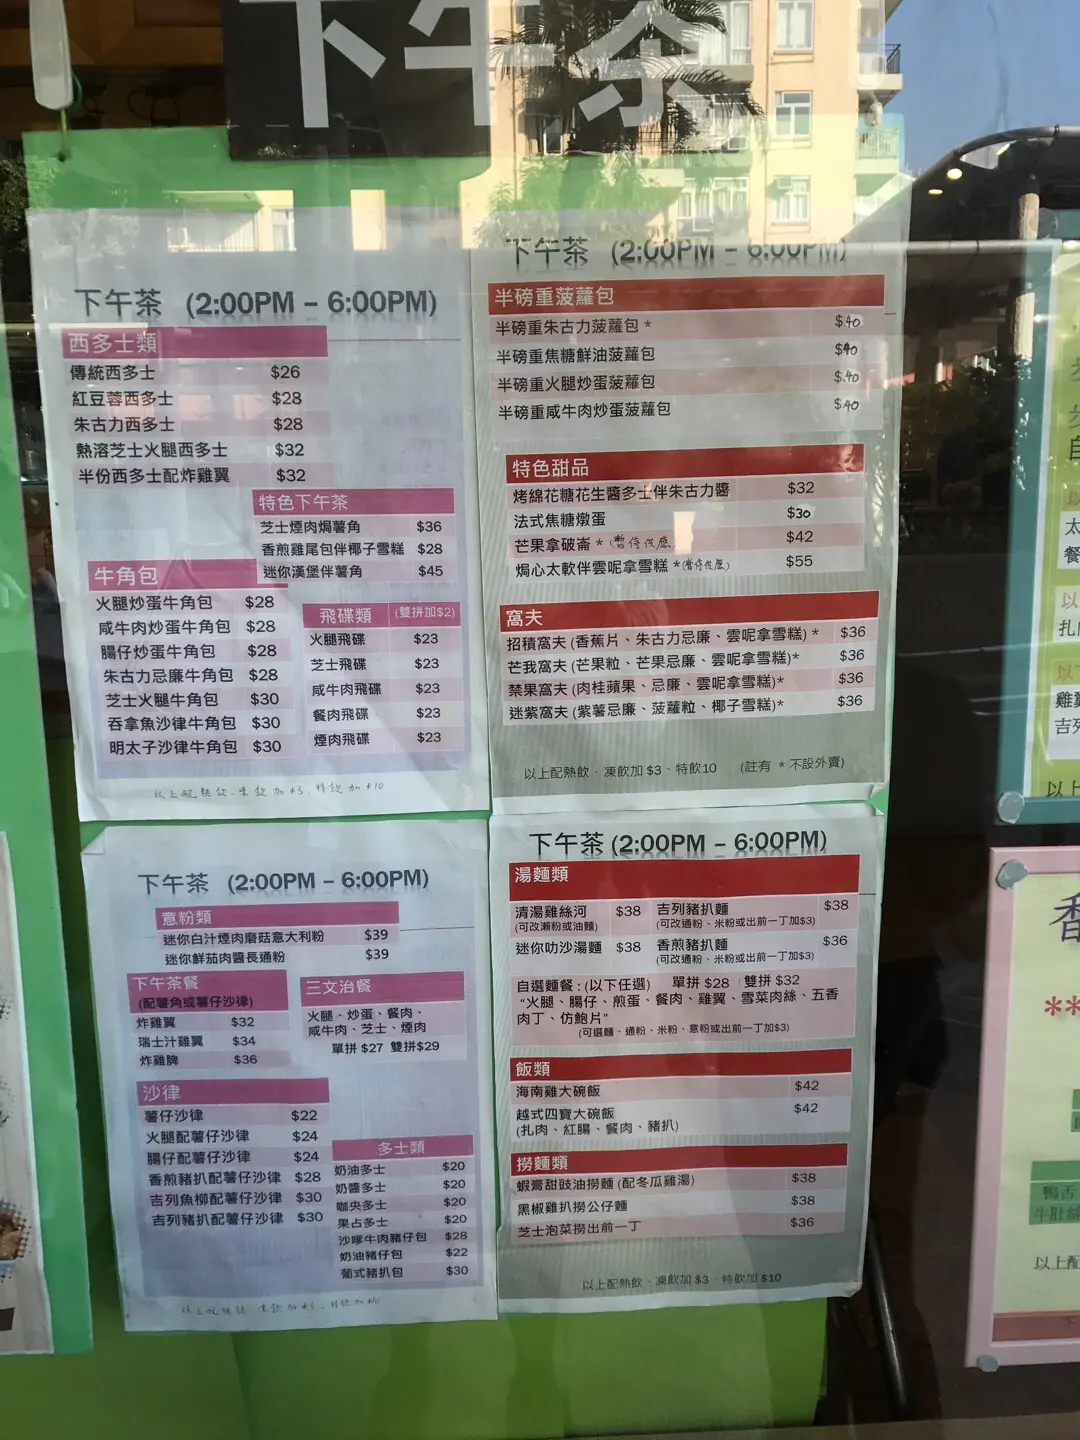 下午茶
下午茶 (2:00PM – 6:00PM)
西多士類
傳統西多士 $26
紅豆蓉西多士 $28
朱古力西多士 $28
熱溶芝士火腿西多士 $32
半份西多士配炸雞翼 $32
特色下午茶
芝士煙肉焗薯角 $36
香煎雞尾包伴椰子雪糕 $28
迷你漢堡伴薯角 $45
牛角包
火腿炒蛋牛角包 $28
咸牛肉炒蛋牛角包 $28
腸仔炒蛋牛角包 $28
朱古力忌廉牛角包 $28
芝士火腿牛角包 $30
吞拿魚沙律牛角包 $30
明太子沙律牛角包 $30
飛碟類 (雙拼加$2)
火腿飛碟 $23
芝士飛碟 $23
咸牛肉飛碟 $23
餐肉飛碟 $23
煙肉飛碟 $23
以上配熱飲、凍飲加$3、特飲加$10
下午茶 (2:00PM – 6:00PM)
半磅重菠蘿包
半磅重朱古力菠蘿包 * $40
半磅重焦糖鮮油菠蘿包 $40
半磅重火腿炒蛋菠蘿包 $40
半磅重咸牛肉炒蛋菠蘿包 $40
特色甜品
烤綿花糖花生醬多士伴朱古力醬 $32
法式焦糖燉蛋 $30
芒果拿破崙 * (暫停供應 $42
焗心太軟伴雲呢拿雪糕 * (暫停供應) $55
窩夫
招積窩夫 (香蕉片、朱古力忌廉、雲呢拿雪糕) * $36
芒我窩夫 (芒果粒、芒果忌廉、雲呢拿雪糕)* $36
禁果窩夫 (肉桂蘋果、忌廉、雲呢拿雪糕)* $36
迷紫窩夫 (紫薯忌廉、菠蘿粒、椰子雪糕)* $36
以上配熱飲、凍飲加 $3、特飲10 (註有 * 不設外賣)
下午茶 (2:00PM – 6:00PM)
意粉類
迷你白汁煙肉磨菇意大利粉 $39
迷你鮮茄肉醬長通粉 $39
下午茶餐
(配薯角或薯仔沙律)
炸雞翼 $32
瑞士汁雞翼 $34
炸雞脾 $36
三文治餐
火腿、炒蛋、餐肉、
咸牛肉、芝士、煙肉
單拼 $27 雙拼$29
沙律
薯仔沙律 $22
火腿配薯仔沙律 $24
腸仔配薯仔沙律 $24
香煎豬扒配薯仔沙律 $28
吉列魚柳配薯仔沙律 $30
吉列豬扒配薯仔沙律 $30
多士類
奶油多士 $20
奶醬多士 $20
咖央多士 $20
果占多士 $20
沙嗲牛肉豬仔包 $28
奶油豬仔包 $22
葡式豬扒包 $30
以上配熱飲、凍飲加$3、特飲加$10
下午茶 (2:00PM – 6:00PM)
湯麵類
清湯雞絲河 $38 吉列豬扒麵 $38
(可改瀨粉或油麵) (可改通粉、米粉或出前一丁加$3)
迷你叻沙湯麵 $38 香煎豬扒麵 $36
(可改通粉、米粉或出前一丁加$3)
自選麵餐 : (以下任選) 單拼 $28 雙拼 $32
"火腿、腸仔、煎蛋、餐肉、雞翼、雪菜肉絲、五香
肉丁、仿鮑片"
(可選麵、通粉、米粉、意粉或出前一丁加$3)
飯類
海南雞大碗飯 $42
越式四寶大碗飯 $42
(扎肉、紅腸、餐肉、豬扒)
撈麵類
蝦膏甜豉油撈麵 (配冬瓜雞湯) $38
黑椒雞扒撈公仔麵 $38
芝士泡菜撈出前一丁 $36
以上配熱飲、凍飲加 $3、特飲加 $10